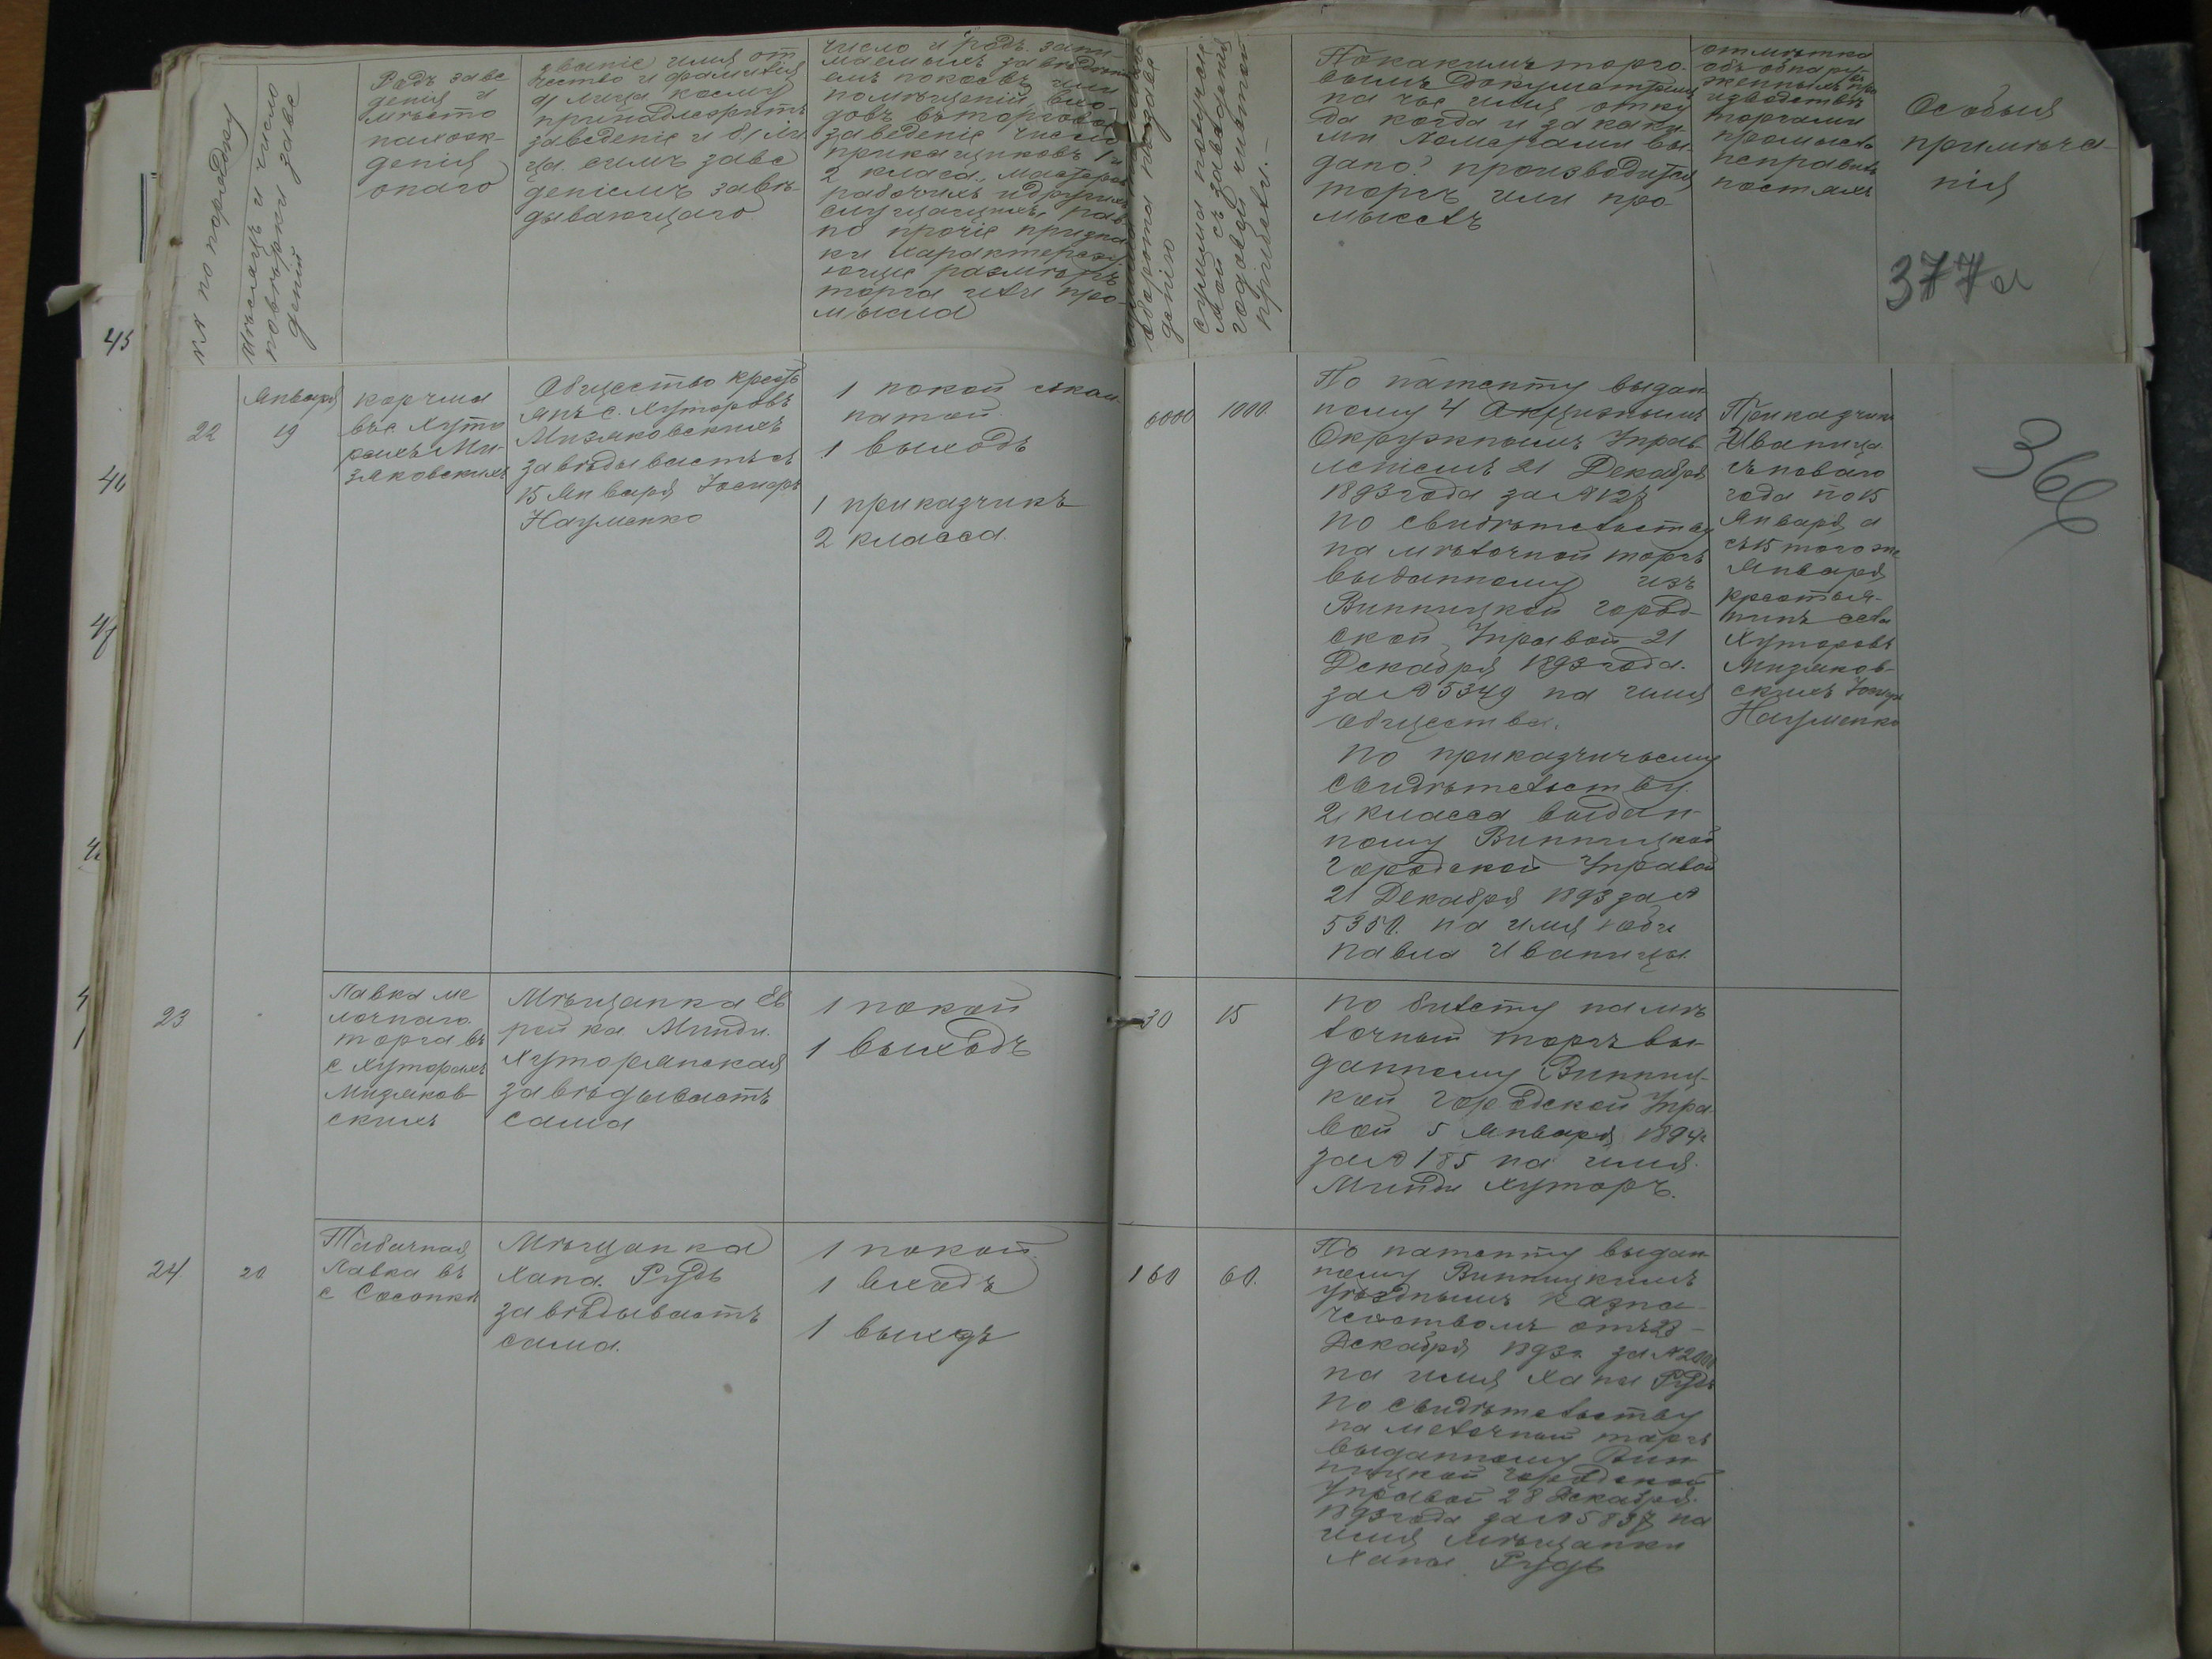 №№ по порядку
Мѣсяцъ и число
повѣрки заве
деній
Родъ заве
денія и
мѣсто
нахож-
денія
онаго
званіе имя от
чество и фамилія
а/ лица коему
принадлежитъ
заведеніе и б/ ли
ца симъ заве
деніемъ завѣ-
дывающаго
число и родъ зани
маемыхъ заведені
емъ покоевъ или
помѣщеній, вхо-
довъ въ торговое
заведеніе число
прикащиковъ 1 и
2 класа, мастеров
рабочихъ и других
служащихъ, рав
но прочіе призна
ки характеризу-
ющіе размѣръ
торга или про-
мысла
оборота по заве
денію
сумма получае
мой съ заведенія
годовой чистой
прибыли.-
По какимъ торго-
вымъ документамъ
на чье имя отку
да когда и за каки
ми номерами вы
дано? производится
торгъ или про-
мыселъ
отмѣтка
объ обнару
женныхъ при
изводствѣ
торгами
промысла
неправиль
ностяхъ
Особыя
примѣча-
нія
377а
366
45
46
47
22
Января
19
корчма
въ с. Хуто
рахъ Ми-
зяковскихъ
Общество кресть
янъ с. Хуторовъ
Мизяковскихъ
завѣдываетъ съ
15 Января Іосифъ
Науменко
1 покой съ ком
натой
1 выходъ
1 приказчикъ
2 класса.
6000
1000.
По патенту выдан
ному 4 Акцизнымъ
Окружнымъ Управ
леніемъ 21 Декабря
1893 года за №123
по свидѣтельству
на мѣлочной торгъ
выданному изъ
Винницкой город-
ской Управой 21
Декабря 1893 года.
за №5349 на имя
общества.
По приказчичьему
свидѣтельству
2 класса выдан-
ному Винницкой
городской Управой
21 Декабря 1893 за №
5350. на имя
Павла Иваницы
Приказчикъ
Иваница
съ новаго
года по 15
Января а
съ 15 того же
Января
крестья-
нинъ села
Хуторовъ
Мизяков-
скихъ Іосифъ
Науменко
23
Лавка ме
лочнаго
торга въ
с Хуторахъ
Мизяков-
скихъ
Мѣщанка Ев
рейка Минди
Хуторянская
завѣдываетъ
сама
1 покой
1 выходъ
30
15
по билету на мѣ
лочный торгъ вы-
данному Винниц-
кой городской Упра
вой 5 Января 1894г
за №185 на имя
Минди Хуторъ.
24
20
Табачная
Лавка въ
с Сосонкѣ
Мѣщанка
Хана Рудь
завѣдываетъ
сама.
1 покой
1 входъ
1 выходъ
160
60.
По патенту выдан
ному Винницкимъ
уѣзднымъ казна-
чействомъ отъ 28
Декабря 1893г. за №
на имя Ханы Рудь
по свидѣтельству
на мелочный торгъ
выданному Вин
ницкой городской
управой 28 Декабря
1893 года за №5837 на
имя мѣщанки
Ханы Рудь